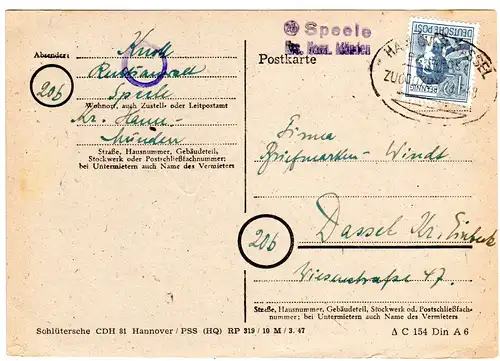 Speele
Hann. Münden
Absender:
Knoll
Postkarte
DEUTSCHE POST
PFENNIG
20b
Speele
Wohnort, auch Zustell- oder Leitpostamt
Kr. Hann.-
Münden
Straße, Hausnummer, Gebäudeteil,
Stockwerk oder Postschließfachnummer;
bei Untermietern auch Name des Vermieters
Firma
Briefmarken-Windt
Dassel Kr. Einbeck
20b
Wiesenstraße 47.
Straße, Hausnummer, Gebäudeteil, Stockwerk od. Postschließfach-
nummer; bei Untermietern auch Name des Vermieters
Schlütersche CDH 81 Hannover / PSS (HQ) RP 319 / 10 M / 3. 47
C 154 Din A 6